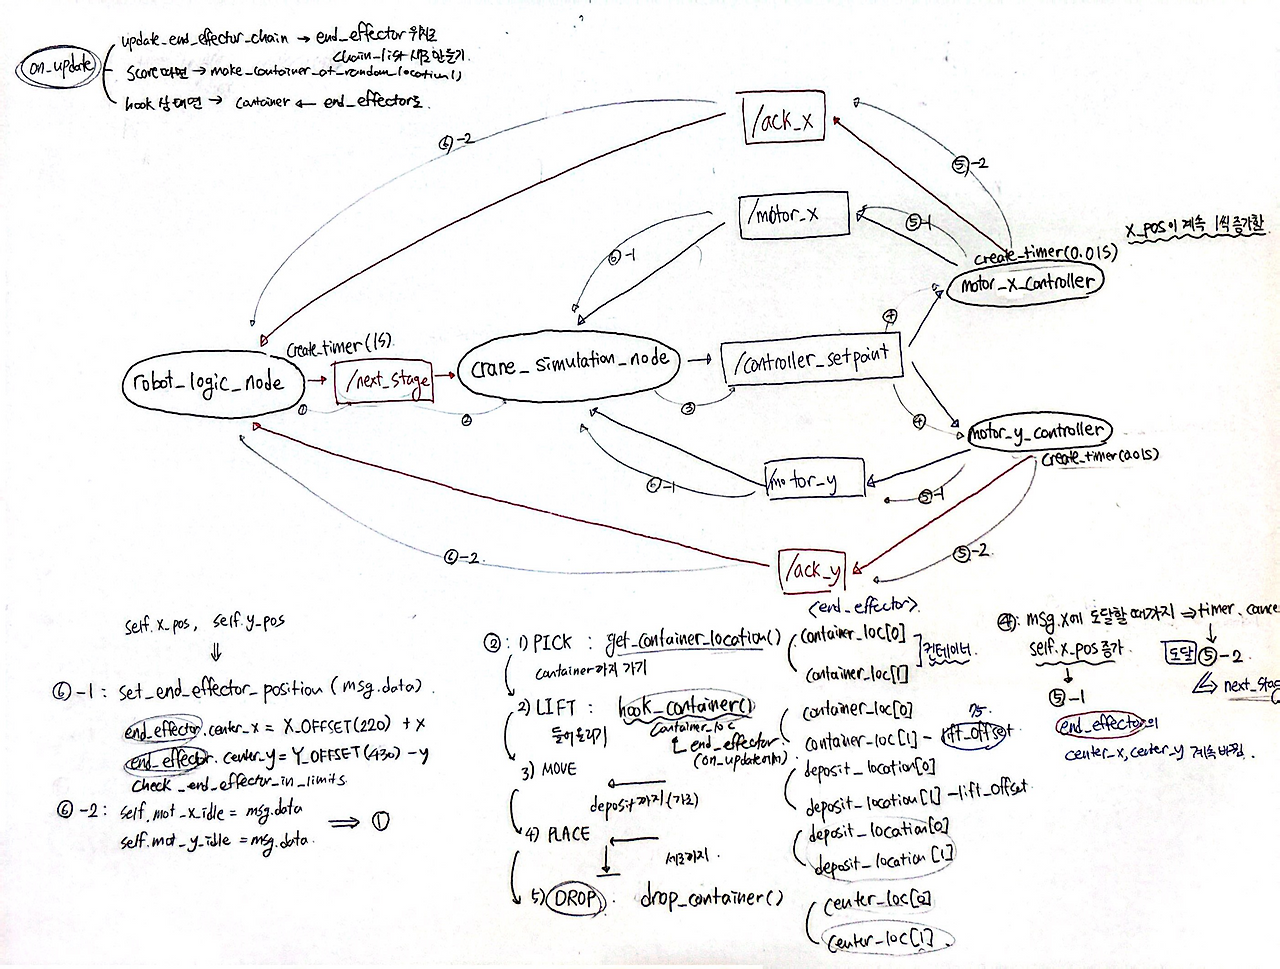 on_update
update_end_effector_chain → end_effector 위치로
chain-list 새로 만들기.
score 따면 → make_container_at_random_location()
hook 상태면 → container ← end_effector로.
/ack_x
⑥-2
⑤-2
/motor_x
⑤-1
⑥-1
x_pos이 계속 1씩 증가함
create_timer(0.01s)
motor_x_controller
④
create_timer(1s).
robot_logic_node
/next_stage
crane_simulation_node
/controller_setpoint
①
②
③
④
motor_y_controller
create_timer(0.01s)
/motor_y
⑥-1
⑤-1
⑥-2
⑤-2
/ack_y
self.x_pos, self.y_pos
⇓
⑥-1: set_end_effector_position (msg.data).
end_effector.center_x = X_OFFSET(220) + x
end_effector.center_y = Y_OFFSET(430) - y
check_end_effector_in_limits
⑥-2: self.mot_x_idle = msg.data
self.mot_y_idle = msg.data.
⇒ ①
<end_effector>
②: 1) PICK : get_container_location()
container_loc[0]
container_loc[1]
컨테이너.
container까지 가기
2) LIFT : hook_container()
들어올리기
container_loc
end_effector
(on_update에서)
container_loc[0]
75.
container_loc[1] - lift_offset
3) MOVE
deposit까지(가로)
deposit_location[0]
deposit_location[1] - lift_offset.
4) PLACE
세로까지.
deposit_location[0]
deposit_location[1]
5) DROP. drop_container()
center_loc[0]
center_loc[1].
④: msg.x에 도달할 때까지 ⇒ timer.cance
self.x_pos 증가.
도달 ⑤-2.
⑤-1
next_stag
end_effector의
center_x, center_y 계속 바뀜.